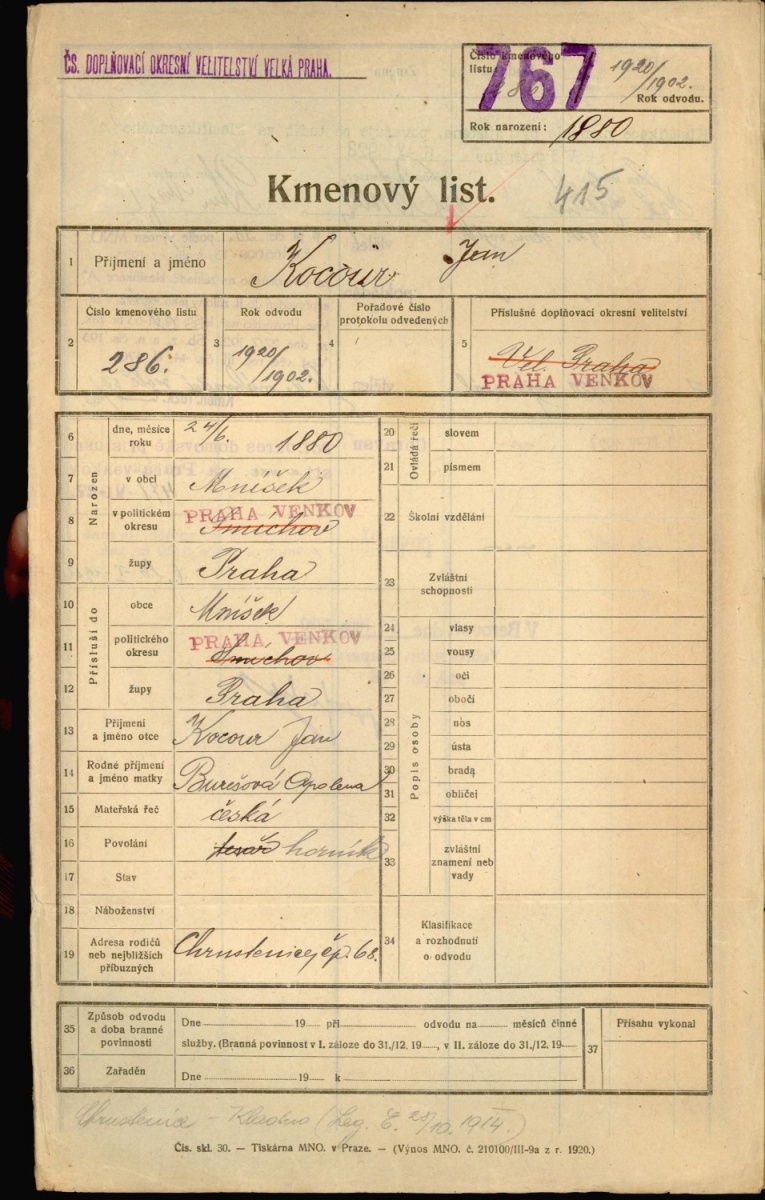 ČS. DOPLŇOVACÍ OKRESNÍ VELITELSTVÍ VELKÁ PRAHA.
Číslo kmenového
listu
767
1920/1902.
Rok odvodu.
Rok narození: 1880
Kmenový list.
415
1 Příjmení a jméno Kocour Jan
2 Číslo kmenového listu 286.
3 Rok odvodu 1920/1902.
4 Pořadové číslo protokolu odvedených
5 Příslušné doplňovací okresní velitelství Vel. Praha
PRAHA VENKOV
Narozen
6 dne, měsíce roku 24/6. 1880
7 v obci Mníšek
8 v politickém okresu Smíchov
PRAHA VENKOV
9 župy Praha
Přísluší do
10 obce Mníšek
11 politického okresu Smíchov
PRAHA VENKOV
12 župy Praha
13 Příjmení a jméno otce Kocour Jan
14 Rodné příjmení a jméno matky Burešová Apolena
15 Mateřská řeč česká
16 Povolání tesař horník
17 Stav
18 Náboženství
19 Adresa rodičů neb nejbližších příbuzných Chrustenice čp. 68.
Ovládá řeč
20 slovem
21 písmem
22 Školní vzdělání
23 Zvláštní schopnosti
Popis osoby
24 vlasy
25 vousy
26 oči
27 obočí
28 nos
29 ústa
30 brada
31 obličej
32 výška těla v cm
33 zvláštní znamení neb vady
34 Klasifikace a rozhodnutí o odvodu
35 Způsob odvodu a doba branné povinnosti
Dne 19 při odvodu na měsíců činné
služby. (Branná povinnost v I. záloze do 31./12. 19 , v II. záloze do 31./12. 19
36 Zařaděn
Dne 19 k
37 Přísahu vykonal
Chrustenice - Kladno (Leg. Č. 28/10. 1914.)
Čís. skl. 30. — Tiskárna MNO. v Praze. — (Výnos MNO. č. 210100/III-9a z r. 1920.)